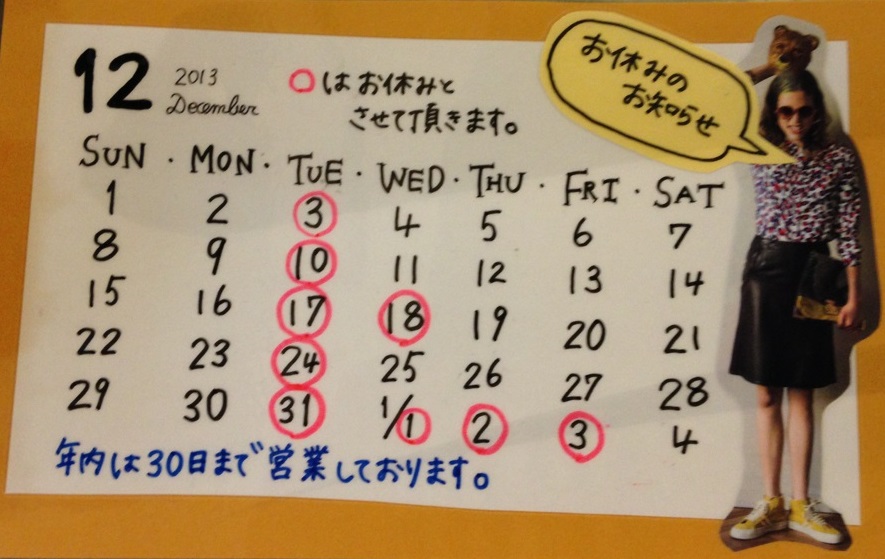 お休みの
お知らせ
12 2013
December
○はお休みと
させて頂きます。
SUN・MON・TUE・WED・THU・FRI・SAT
1 2 3 4 5 6 7
8 9 10 11 12 13 14
15 16 17 18 19 20 21
22 23 24 25 26 27 28
29 30 31 1/1 2 3 4
年内は30日まで営業しております。